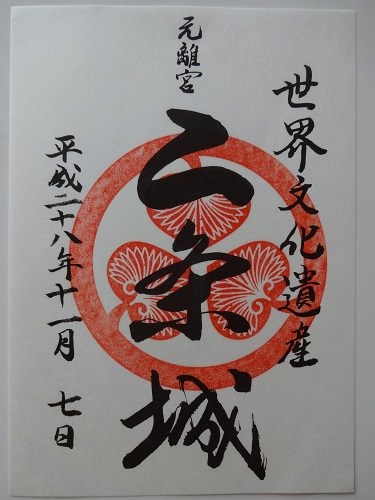 世界文化遺産
元離宮
二条城
平成二十八年十一月 七日